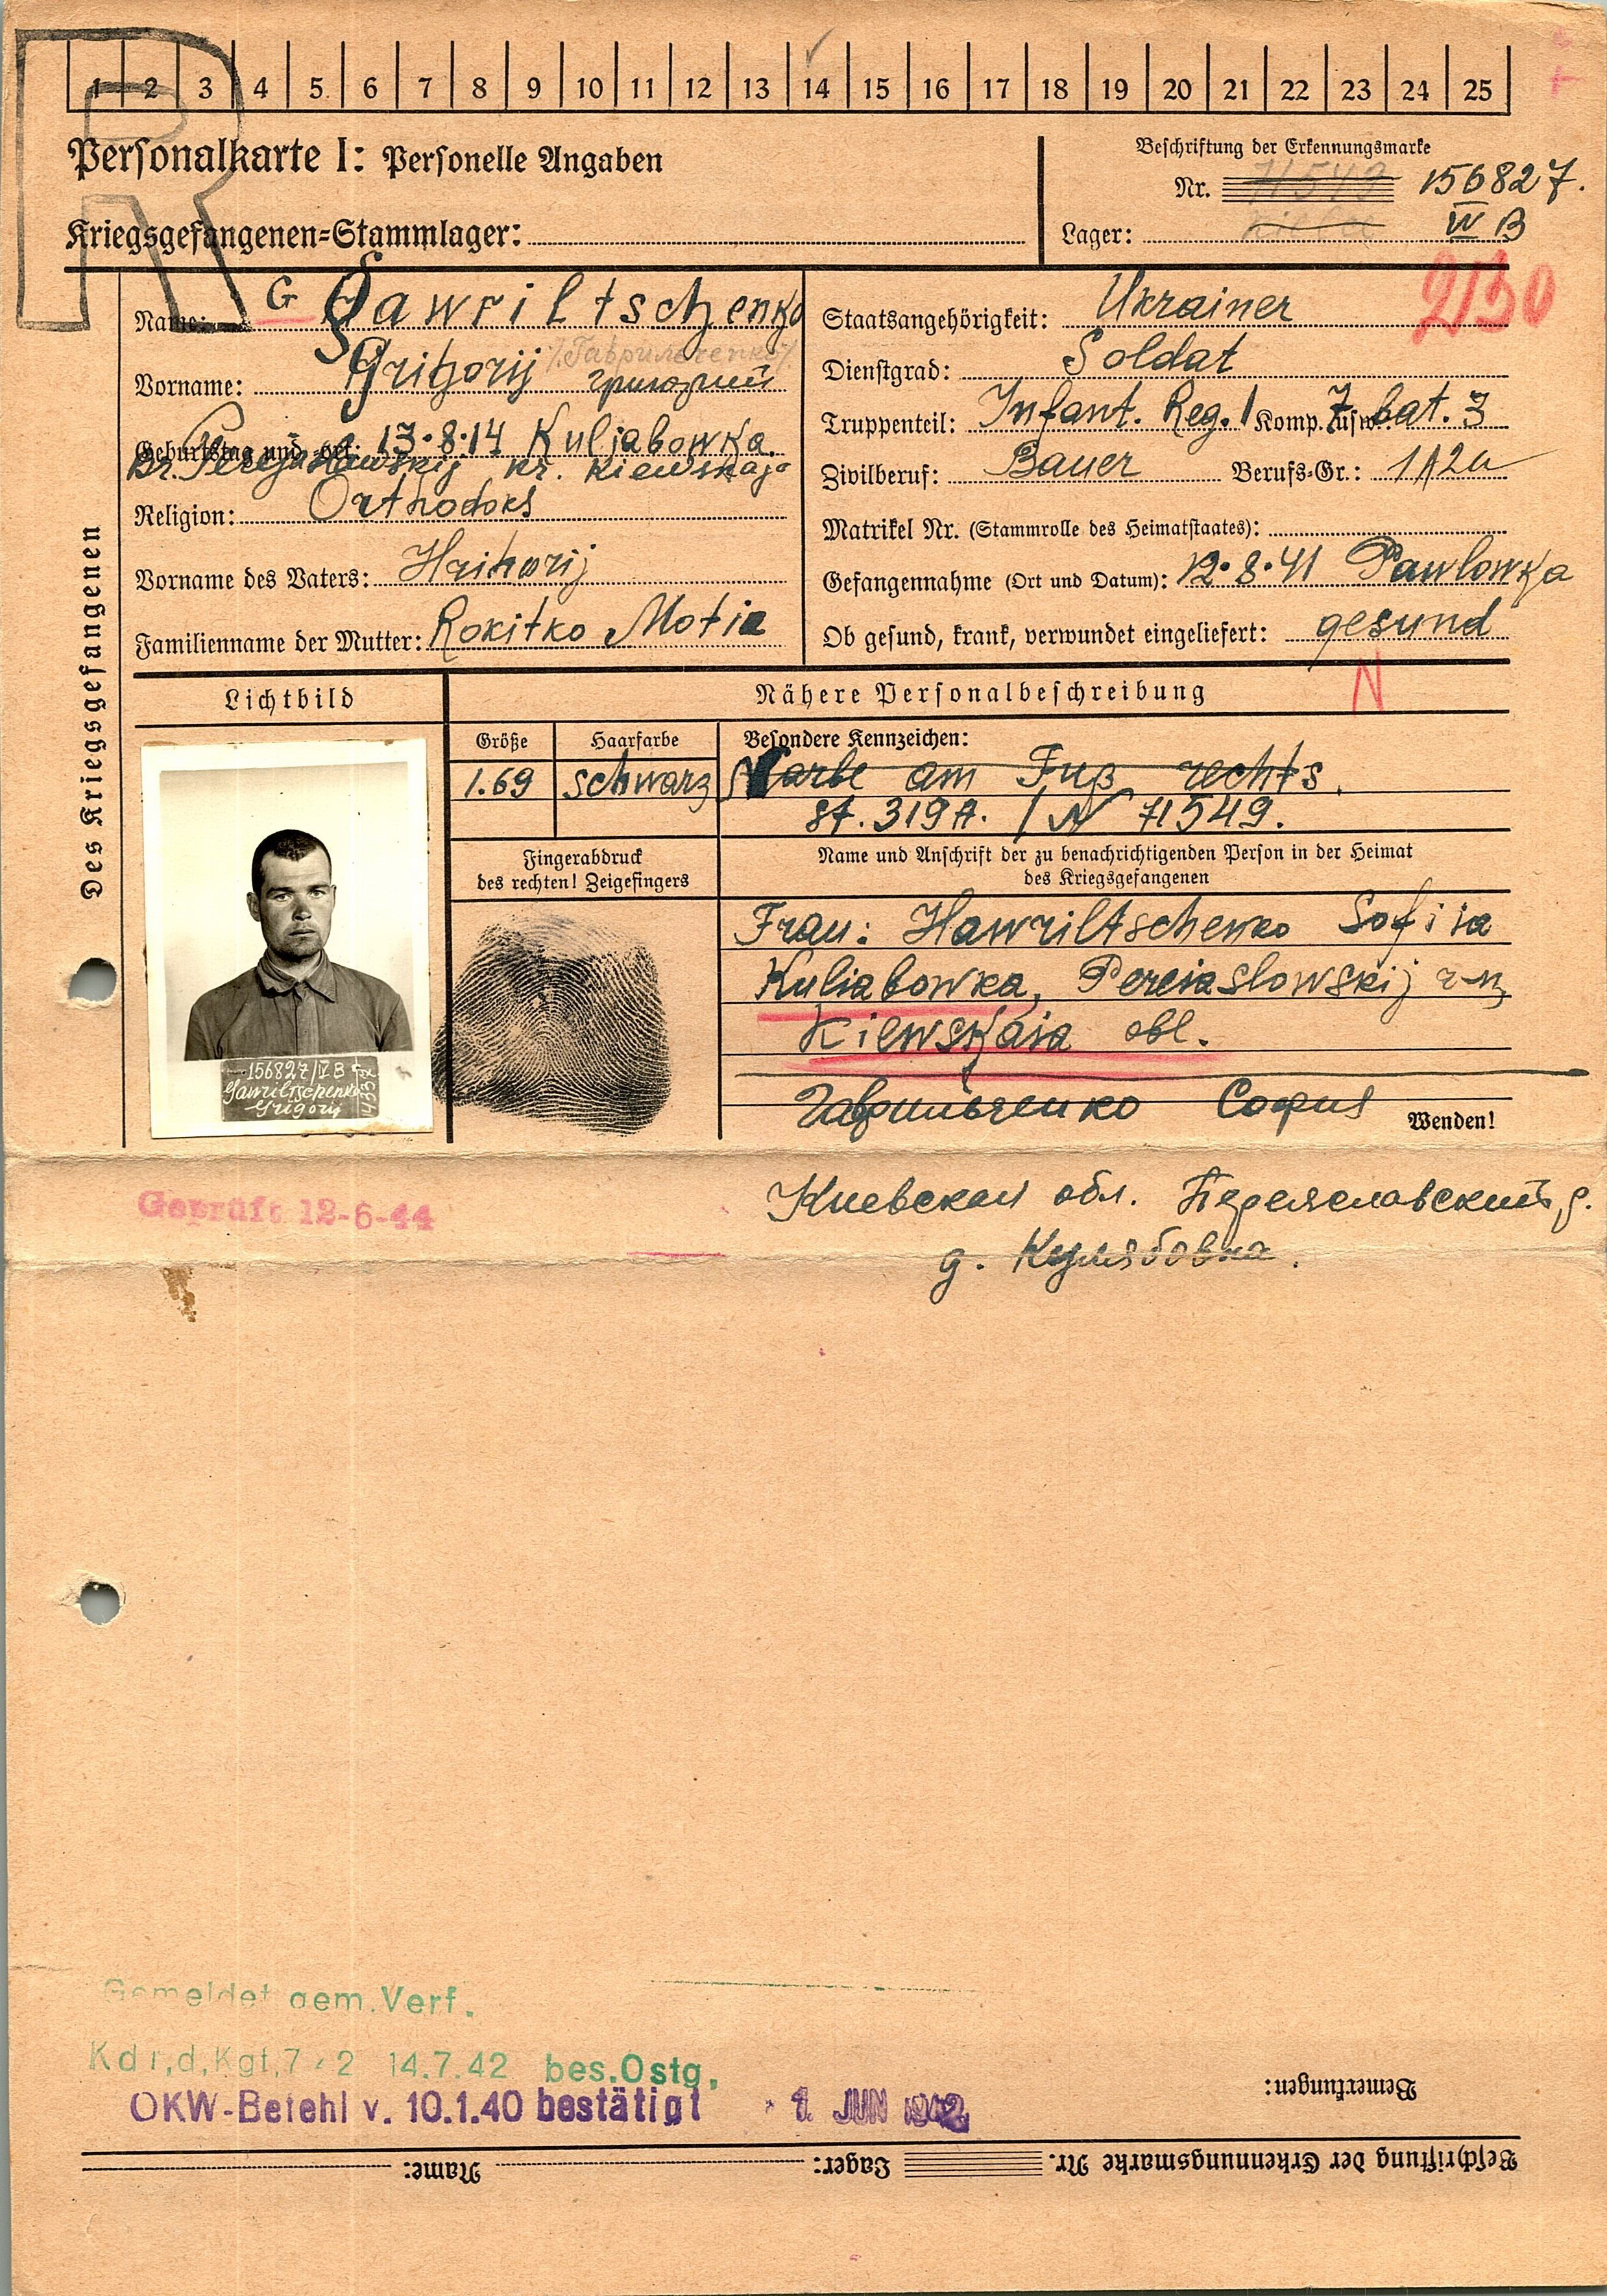 1 2 3 4 5 6 7 8 9 10 11 12 13 14 15 16 17 18 19 20 21 22 23 24 25
R
Personalkarte I: Personelle Angaben
Kriegsgefangenen=Stammlager:
Beschriftung der Erkennungsmarke
Nr. 71549 156827.
Lager: IV B
2130
Des Kriegsgefangenen
Name: G Gawriltschenko
/Гаврильченко/
Vorname: Grigorij Григорий
Geburtstag und =ort: 13.8.14 Kuljabowka.
kr. Kiewskaja
Religion: Orthodoks
Vorname des Vaters: Hrihorij
Familienname der Mutter: Rokitko Motia
Staatsangehörigkeit: Ukrainer
Dienstgrad: Soldat
Truppenteil: Infant. Reg. 1 Komp. usw.: 7 bat. 3
Zivilberuf: Bauer Berufs=Gr.: 1A2a
Matrikel Nr. (Stammrolle des Heimatstaates):
Gefangennahme (Ort und Datum): 12.8.41 Pawlowka
Ob gesund, krank, verwundet eingeliefert: gesund
N
Lichtbild
Nähere Personalbeschreibung
Größe
1.69
Haarfarbe
schwarz
Besondere Kennzeichen:
Narbe am Fuß rechts.
St. 319A. / N 71549.
Fingerabdruck
des rechten! Zeigefingers
Name und Anschrift der zu benachrichtigenden Person in der Heimat
des Kriegsgefangenen
Frau: Hawriltschenko Sofiia
Kuliabowka, Pereiaslowskij r-n
Kiewskaia obl.
Гаврильченко София
Wenden!
156827/IV B
Gawriltschenko
Grigorij
Geprüft 12-6-44
Киевская обл. Переяславский р.
д. Кулябовка.
Gemeldet gem. Verf.
Kdr,d,Kgf, 14.7.42 bes.Ostg,
OKW-Befehl v. 10.1.40 bestätigt 1. JUN 1942
Bemerkungen:
Beschriftung der Erkennungsmarke Nr. Lager: Name: